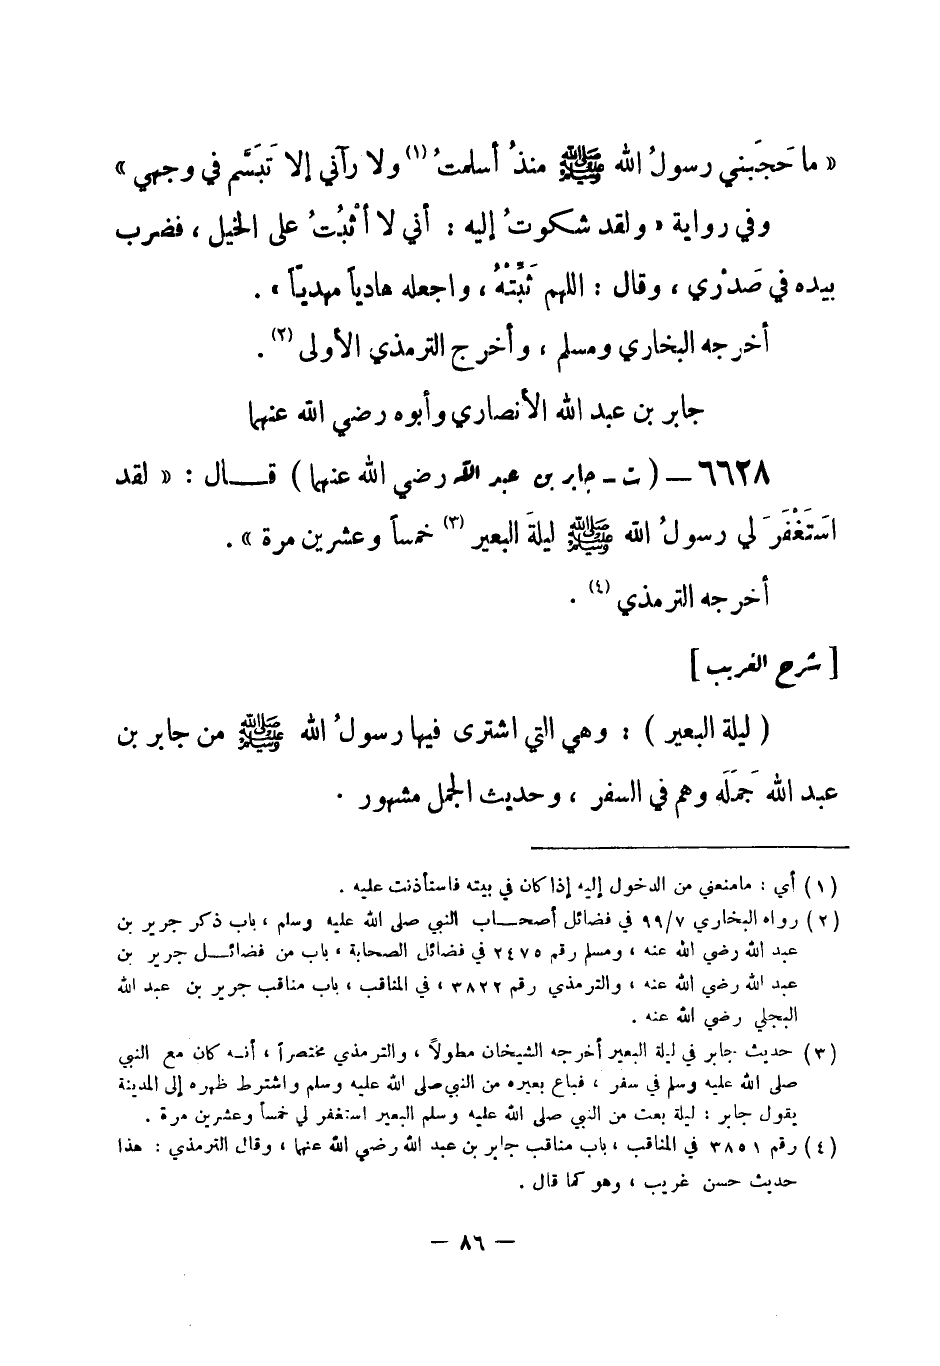 « ما حَجَبني رسولُ الله ﷺ منذُ أسلمتُ (١) ولا رآني إلا تَبَسَّم في وجهي »
وفي رواية « ولقد شكوتُ إليه : أني لا أثْبُتُ على الخيل ، فضرب
بيده في صَدْري ، وقال : اللهم ثَبِّتْهُ ، واجعله هادياً مهديّاً » .
أخرجه البخاري ومسلم ، وأخرج الترمذي الأولى (٢) .
جابر بن عبد الله الأنصاري وأبوه رضي الله عنهما
٦٦٢٨ – ( ت - جابر بن عبد الله رضي الله عنهما ) قـــال : « لقد
اسَتَغْفَرَ لي رسولُ الله ﷺ ليلةَ البعير (٣) خمساً وعشرين مرة » .
أخرجه الترمذي (٤) .
[ شرح الغريب ]
( ليلة البعير ) : وهي التي اشترى فيها رسولُ الله ﷺ من جابر بن
عبد الله جَمَلَه وهم في السفر ، وحديث الجمل مشهور .
(١) أي : مامنعني من الدخول إليه إذا كان في بيته فاستأذنت عليه .
(٢) رواه البخاري ٩٩/٧ في فضائل أصحـــاب النبي صلى الله عليه وسلم ، باب ذكر جرير بن
عبد الله رضي الله عنه ، ومسلم رقم ٢٤٧٥ في فضائل الصحابة ، باب من فضائـــل جرير بن
عبد الله رضي الله عنه ، والترمذي رقم ٣٨٢٢ ، في المناقب ، باب مناقب جرير بن عبد الله
البجلي رضي الله عنه .
(٣) حديث جابر في ليلة البعير أخرجه الشيخان مطولاً ، والترمذي مختصراً ، أنـه كان مع النبي
صلى الله عليه وسلم في سفر ، فباع بعيره من النبي صلى الله عليه وسلم واشترط ظهره إلى المدينة
يقول جابر : ليلة بعت من النبي صلى الله عليه وسلم البعير استغفر لي خمساً وعشرين مرة .
(٤) رقم ٣٨٥١ في المناقب ، باب مناقب جابر بن عبد الله رضي الله عنهما ، وقال الترمذي : هذا
حديث حسن غريب ، وهو كما قال .
– ٨٦ –